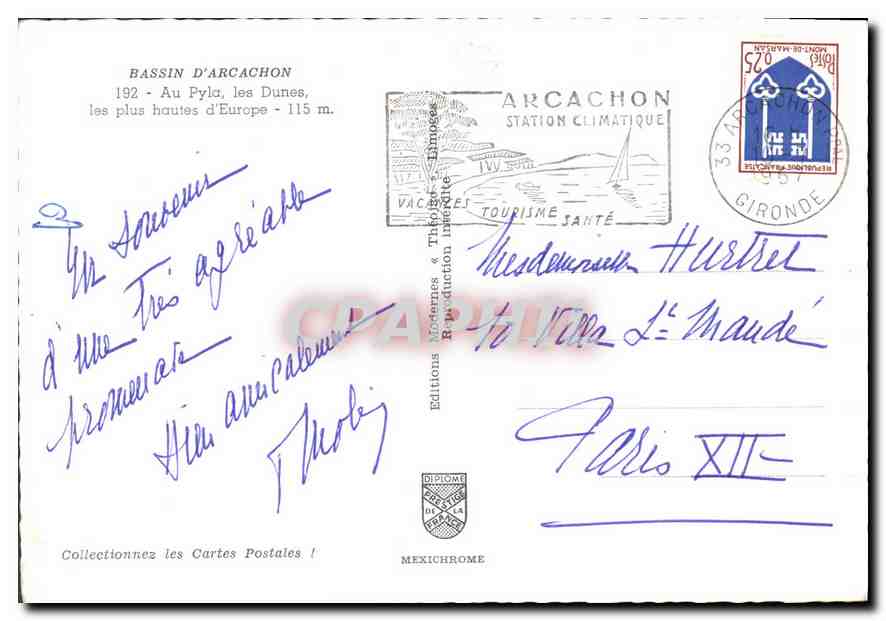 BASSIN D'ARCACHON
192 - Au Pyla, les Dunes,
les plus hautes d'Europe - 115 m.
Un souvenir
d'une très agréable
promenade
Bien amicalement
Collectionnez les Cartes Postales !
Editions Modernes « Théojac » Limoges
Reproduction interdite
DIPLOME
PRESTIGE
DE LA
FRANCE
MEXICHROME
ARCACHON
STATION CLIMATIQUE
VACANCES TOURISME SANTÉ
33 ARCACHON PPAL
GIRONDE
POSTES
0,25
MONT-DE-MARSAN
REPUBLIQUE FRANÇAISE
Mesdemoiselles Hurtret
10 Villa St Mandé
Paris XII
CPAPHIL